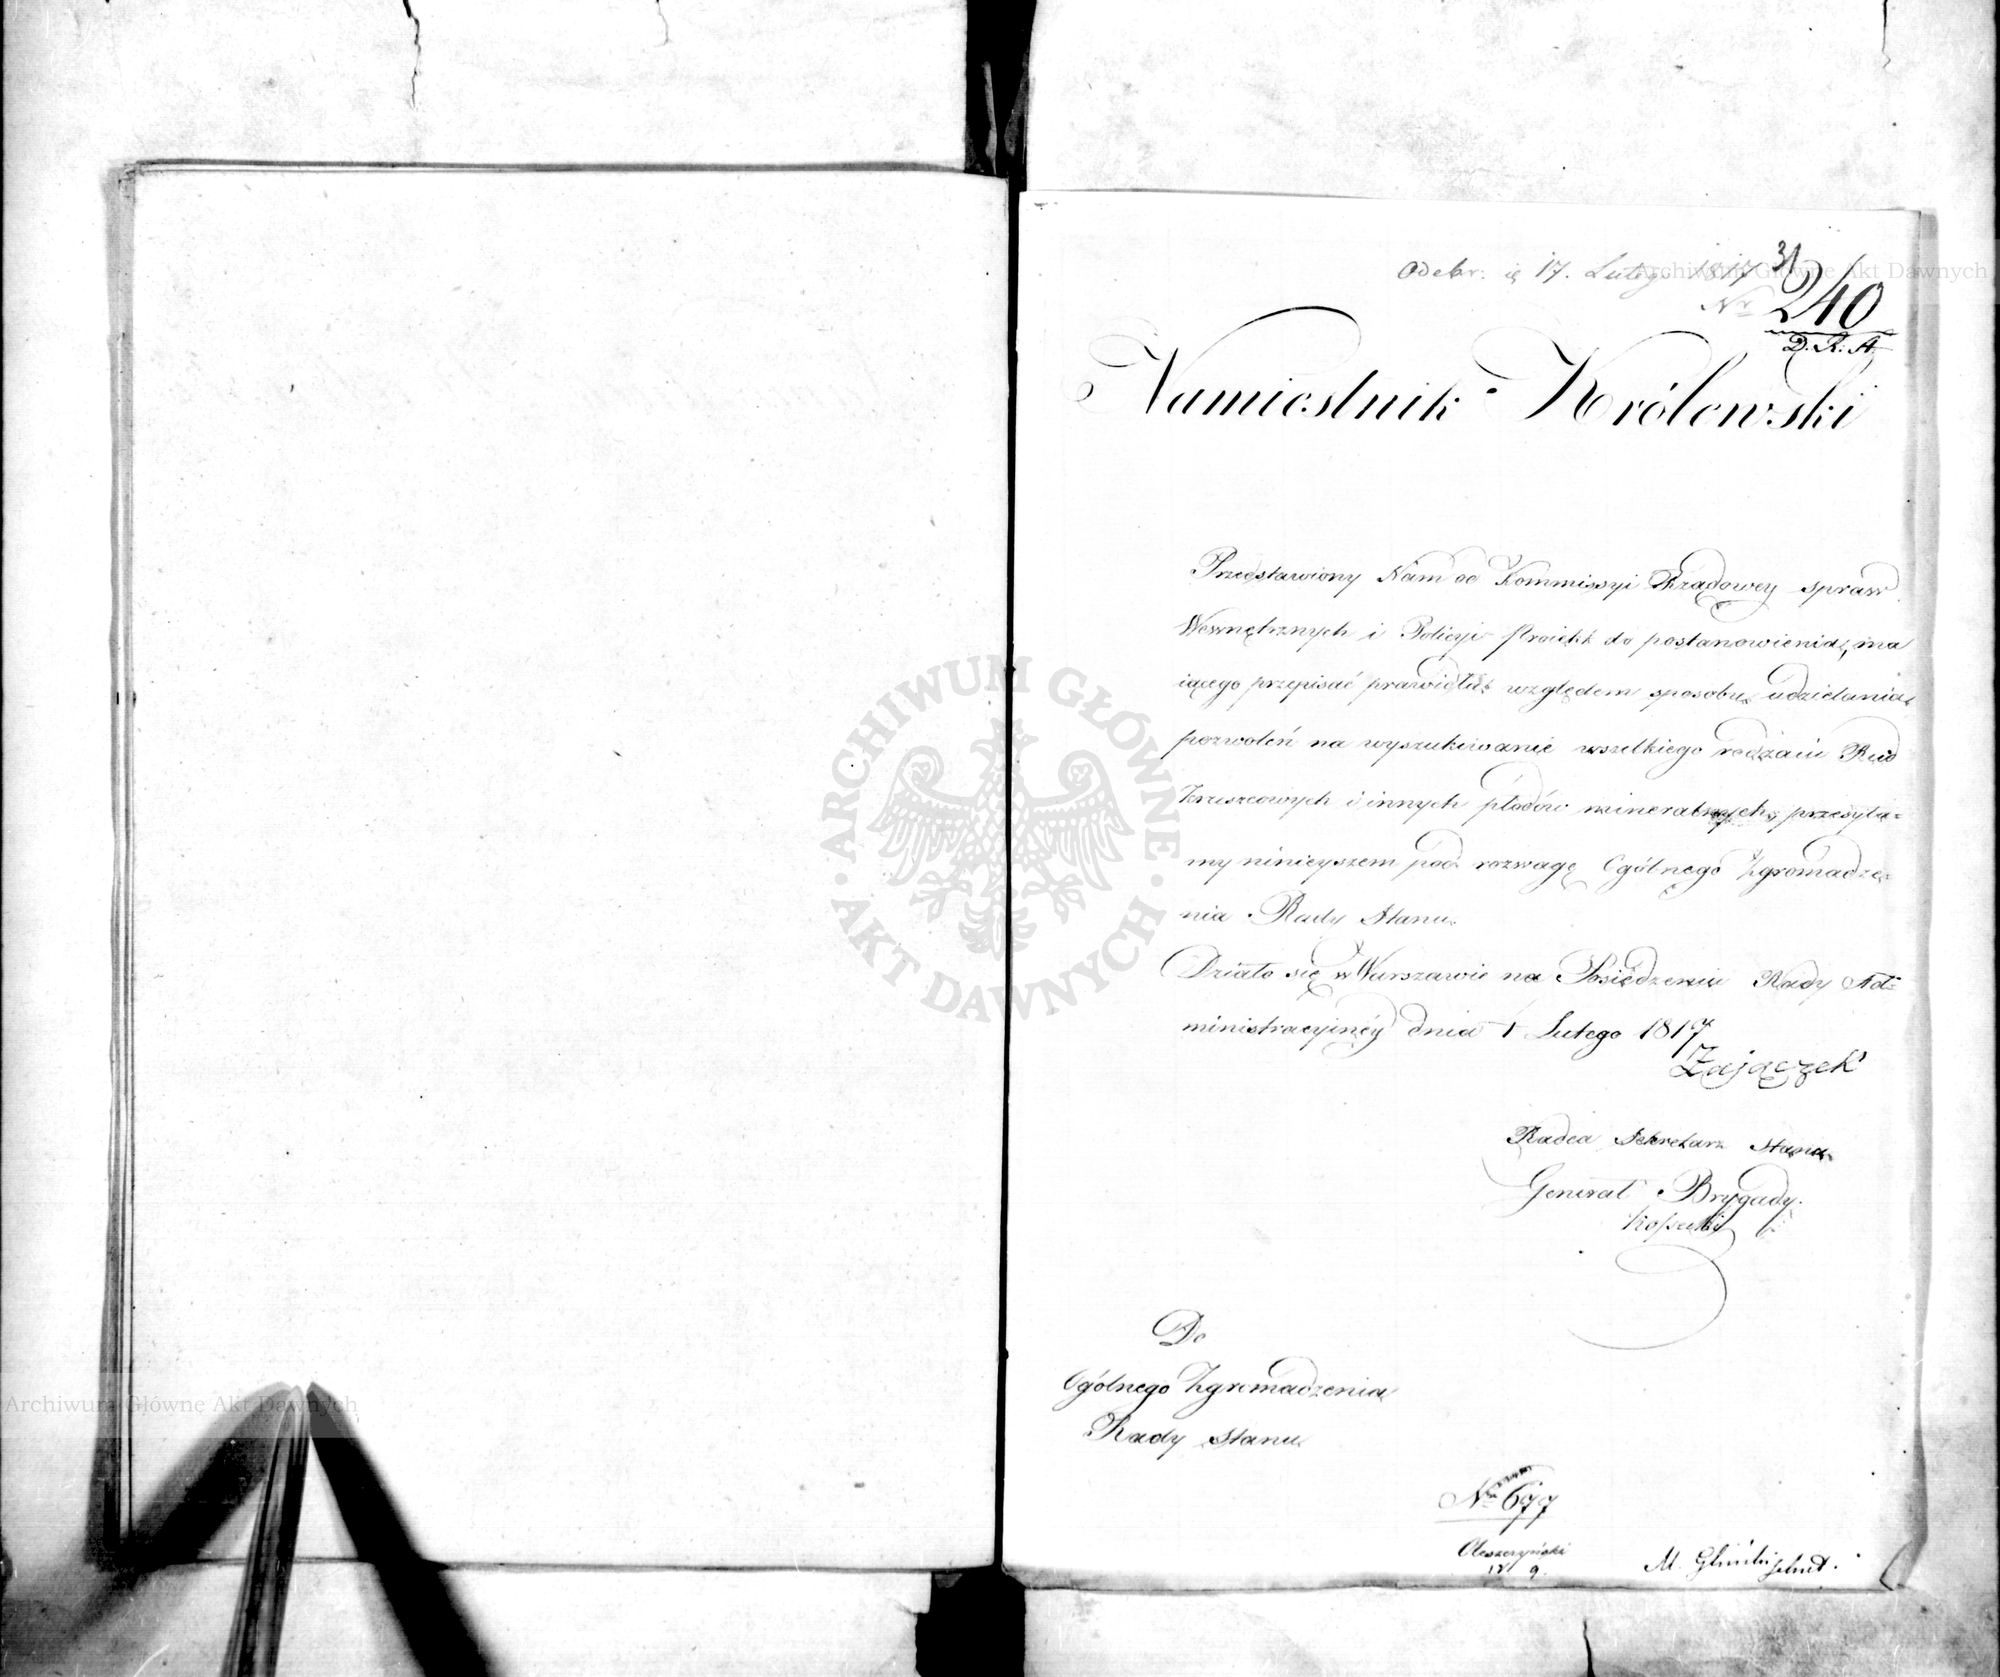 Odebr: ię 17. Lutego 1817
31
Nr 240
D. R: A.
Namiestnik Królewski
Przedstawiony Nam od Kommissyi Rządowey spraw
Wewnętrznych i Policyi Proiekt do postanowienia, ma
iącego przepisać prawidła względem sposobu udzielania
pozwoleń na wyszukiwanie wszelkiego rodzaiu Rud
Kruszcowych i innych płodów mineralnych, przesyła=
my ninieyszem pod rozwagę Ogólnego Zgromadze=
nia Rady Stanu.
Działo się w Warszawie na Posiedzeniu Rady Ad=
ministracyinéy dnia 1 Lutego 1817
Zajączek
Radca Sekretarz Stanu
Generał Brygady.
Kossecki
Do
Ogólnego Zgromadzenia
Rady Stanu
No 677
Oleszczyński
9.
M. Gliński
ARCHIWUM GŁÓWNE · AKT DAWNYCH ·
Archiwum Główne Akt Dawnych
Archiwum Główne Akt Dawnych